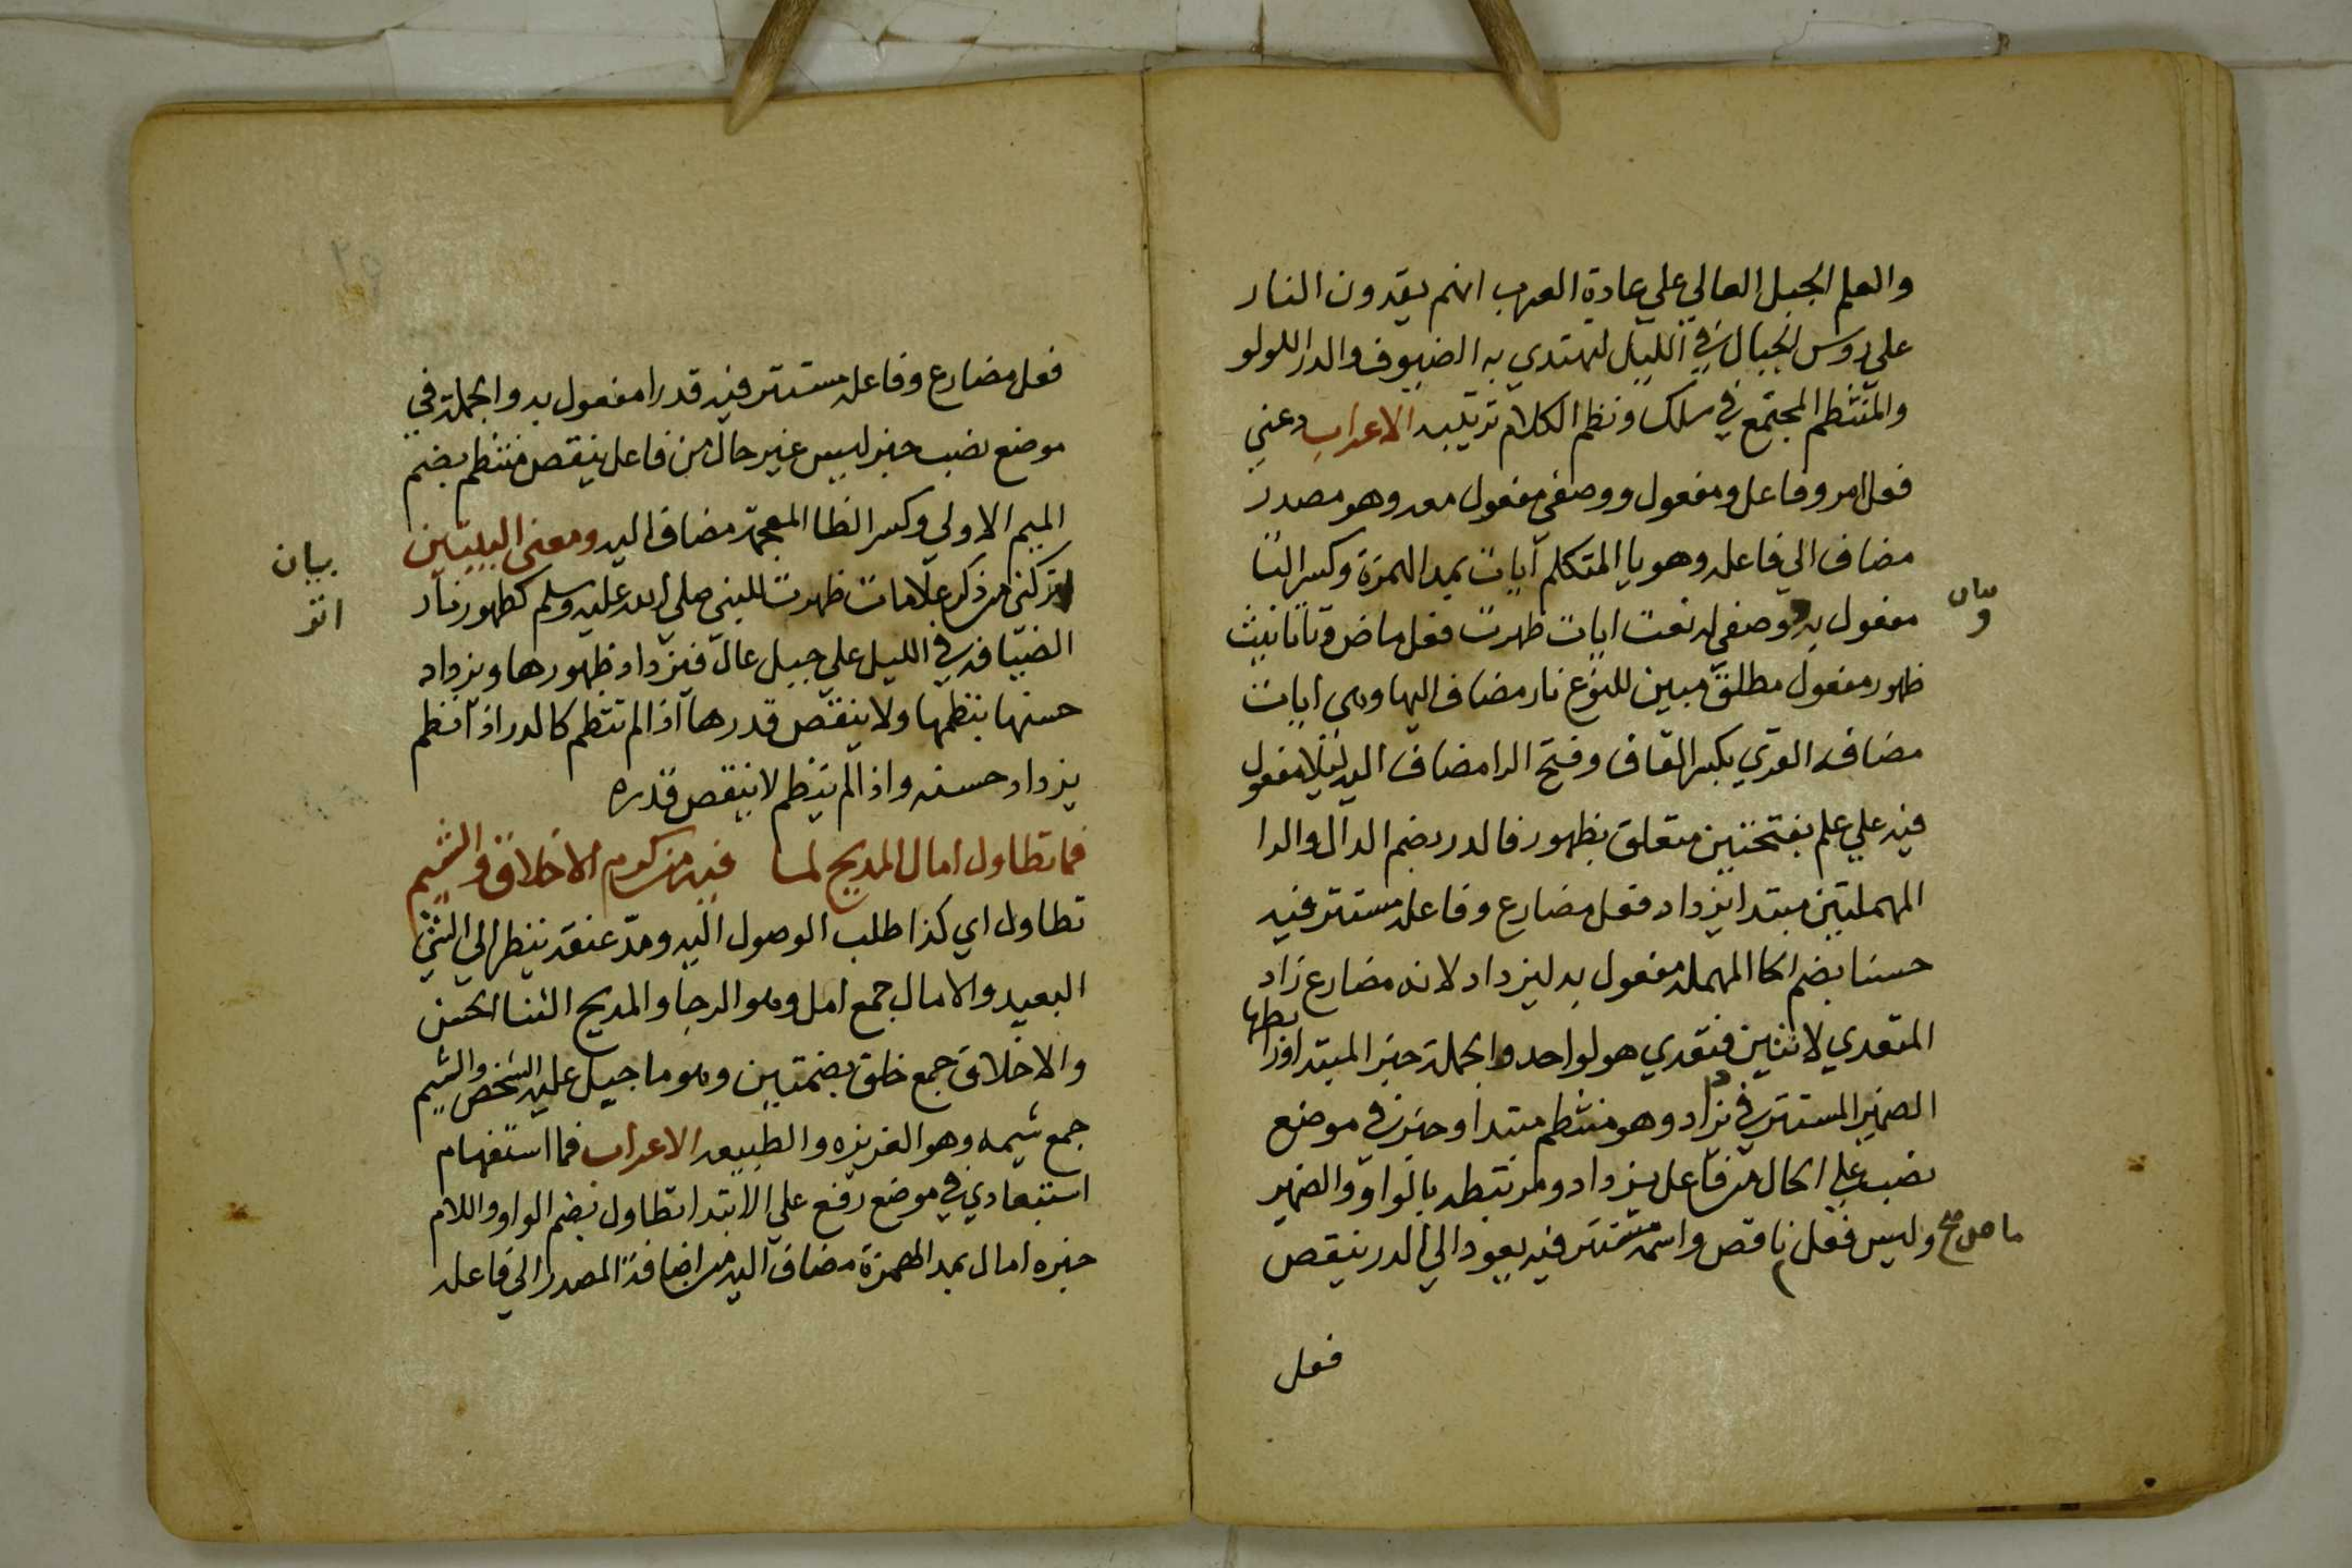 والعلم الجبل العالي علي عادة العرب انهم يقدون النار
علي روس الجبال في الليل ليهتدي به الضيوف والدر اللولو
والمنتظم المجتمع في سلك ونظم الكلام ترتيبه الاعراب دعني
فعل امر وفاعل ومفعول ووصفي مفعول معه وهو مصدر
مضاف الي فاعله وهو يا المتكلم آيات بمد الهمزة وكسر التا
مفعول به وصفي له نعت ايات ظهرت فعل ماض وتا تانيث
بيان
و
ظهور مفعول مطلق مبين للنوع نار مضاف اليها وهي ايات
مضافه القري بكسر القاف وفتح الرا مضاف اليه ليلا مفعول
فيه علي علم بفتحتين متعلق بظهور فالدر بضم الدال والرا
المهملتين مبتدا يزداد فعل مضارع وفاعله مستتر فيه
حسنا بضم الحا المهمله مفعول به ليزداد لانه مضارع زاد
المتعدي لاثنين فتعدي هو لواحد والجملة خبر المبتدا ورابطها
الضمير المستتر في يزداد وهو منتظم مبتدا وخبر في موضع
نصب علي الحال من فاعل يزداد ومرتبطه بالواو والضمير
وليس فعل ناقص واسمه مستتر فيه يعود الي الدر ينقص
ماض صح
فعل
فعل مضارع وفاعله مستتر فيه قدرا مفعول به والجملة في
موضع نصب خبر ليس غير حال من فاعل ينقص منتظم بضم
الميم الاولي وكسر الظا المعجمة مضاف اليه ومعني البيتين
اتركني من ذكر علامات ظهرت للنبي صلي الله عليه وسلم كظهور نار
بيان
اتر
الضيافه في الليل علي جبل عال فيزداد ظهورها ويزداد
حسنها بنظمها ولا ينقص قدرها اذا لم تنتظم كالدر اذا انتظم
يزداد حسنه واذا لم ينتظم لا ينقص قدره
فما تطاول امال المديح لما فيه من كرم الاخلاق والشيم
تطاول اي كذا طلب الوصول اليه ومد عنقه ينظر الي الشي
البعيد والامال جمع امل وهو الرجا والمديح الثنا الحسن
والاخلاق جمع خلق بضمتين وهو ما جبل عليه الشخص والشيم
جمع شيمه وهو الغريزه والطبيعه الاعراب فما استفهام
استبعادي في موضع رفع علي الابتدا تطاول بضم الواو واللام
خبره امال بمد الهمزة مضاف اليه من اضافة المصدر الي فاعله